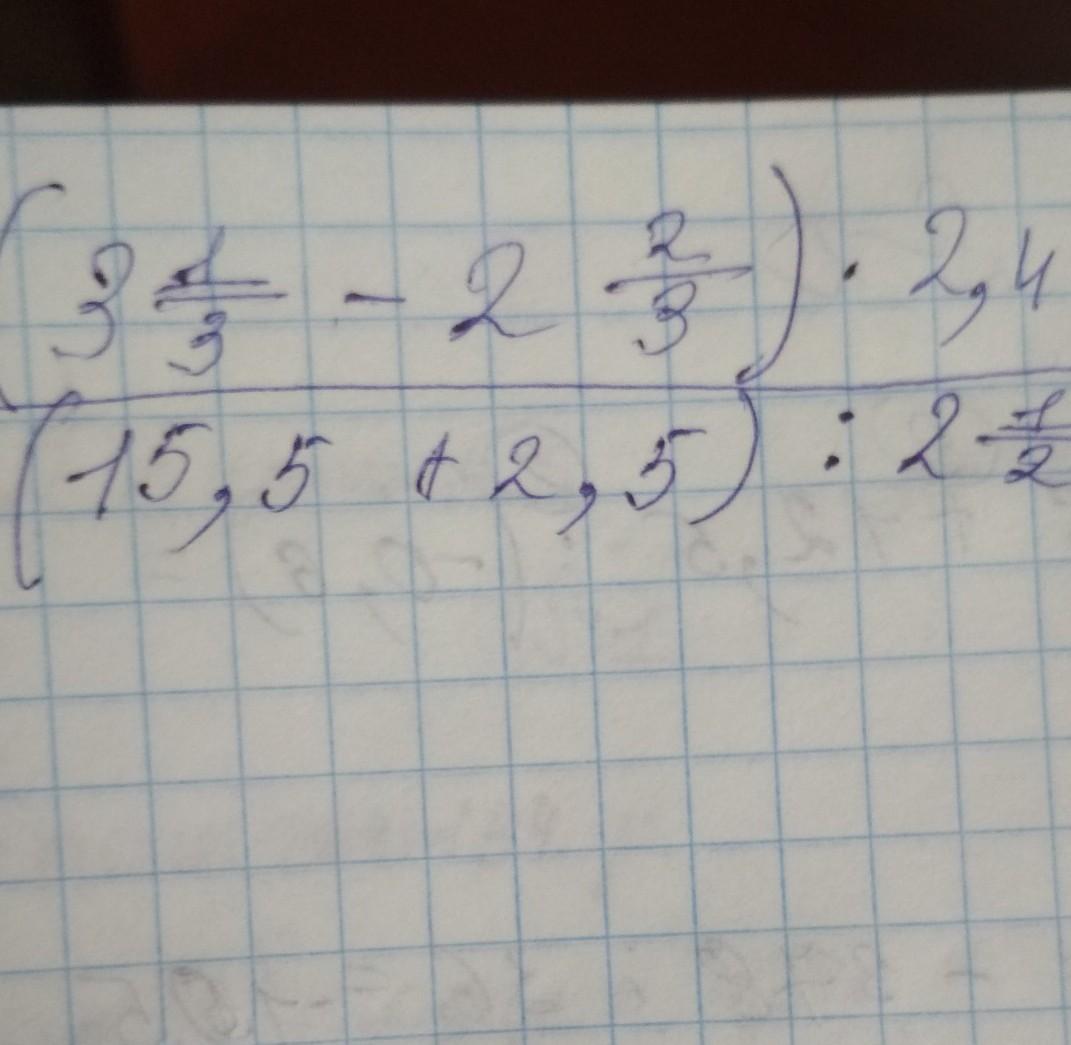 (3 1/3 - 2 2/3) · 2,4
(15,5 + 2,5) : 2 1/2